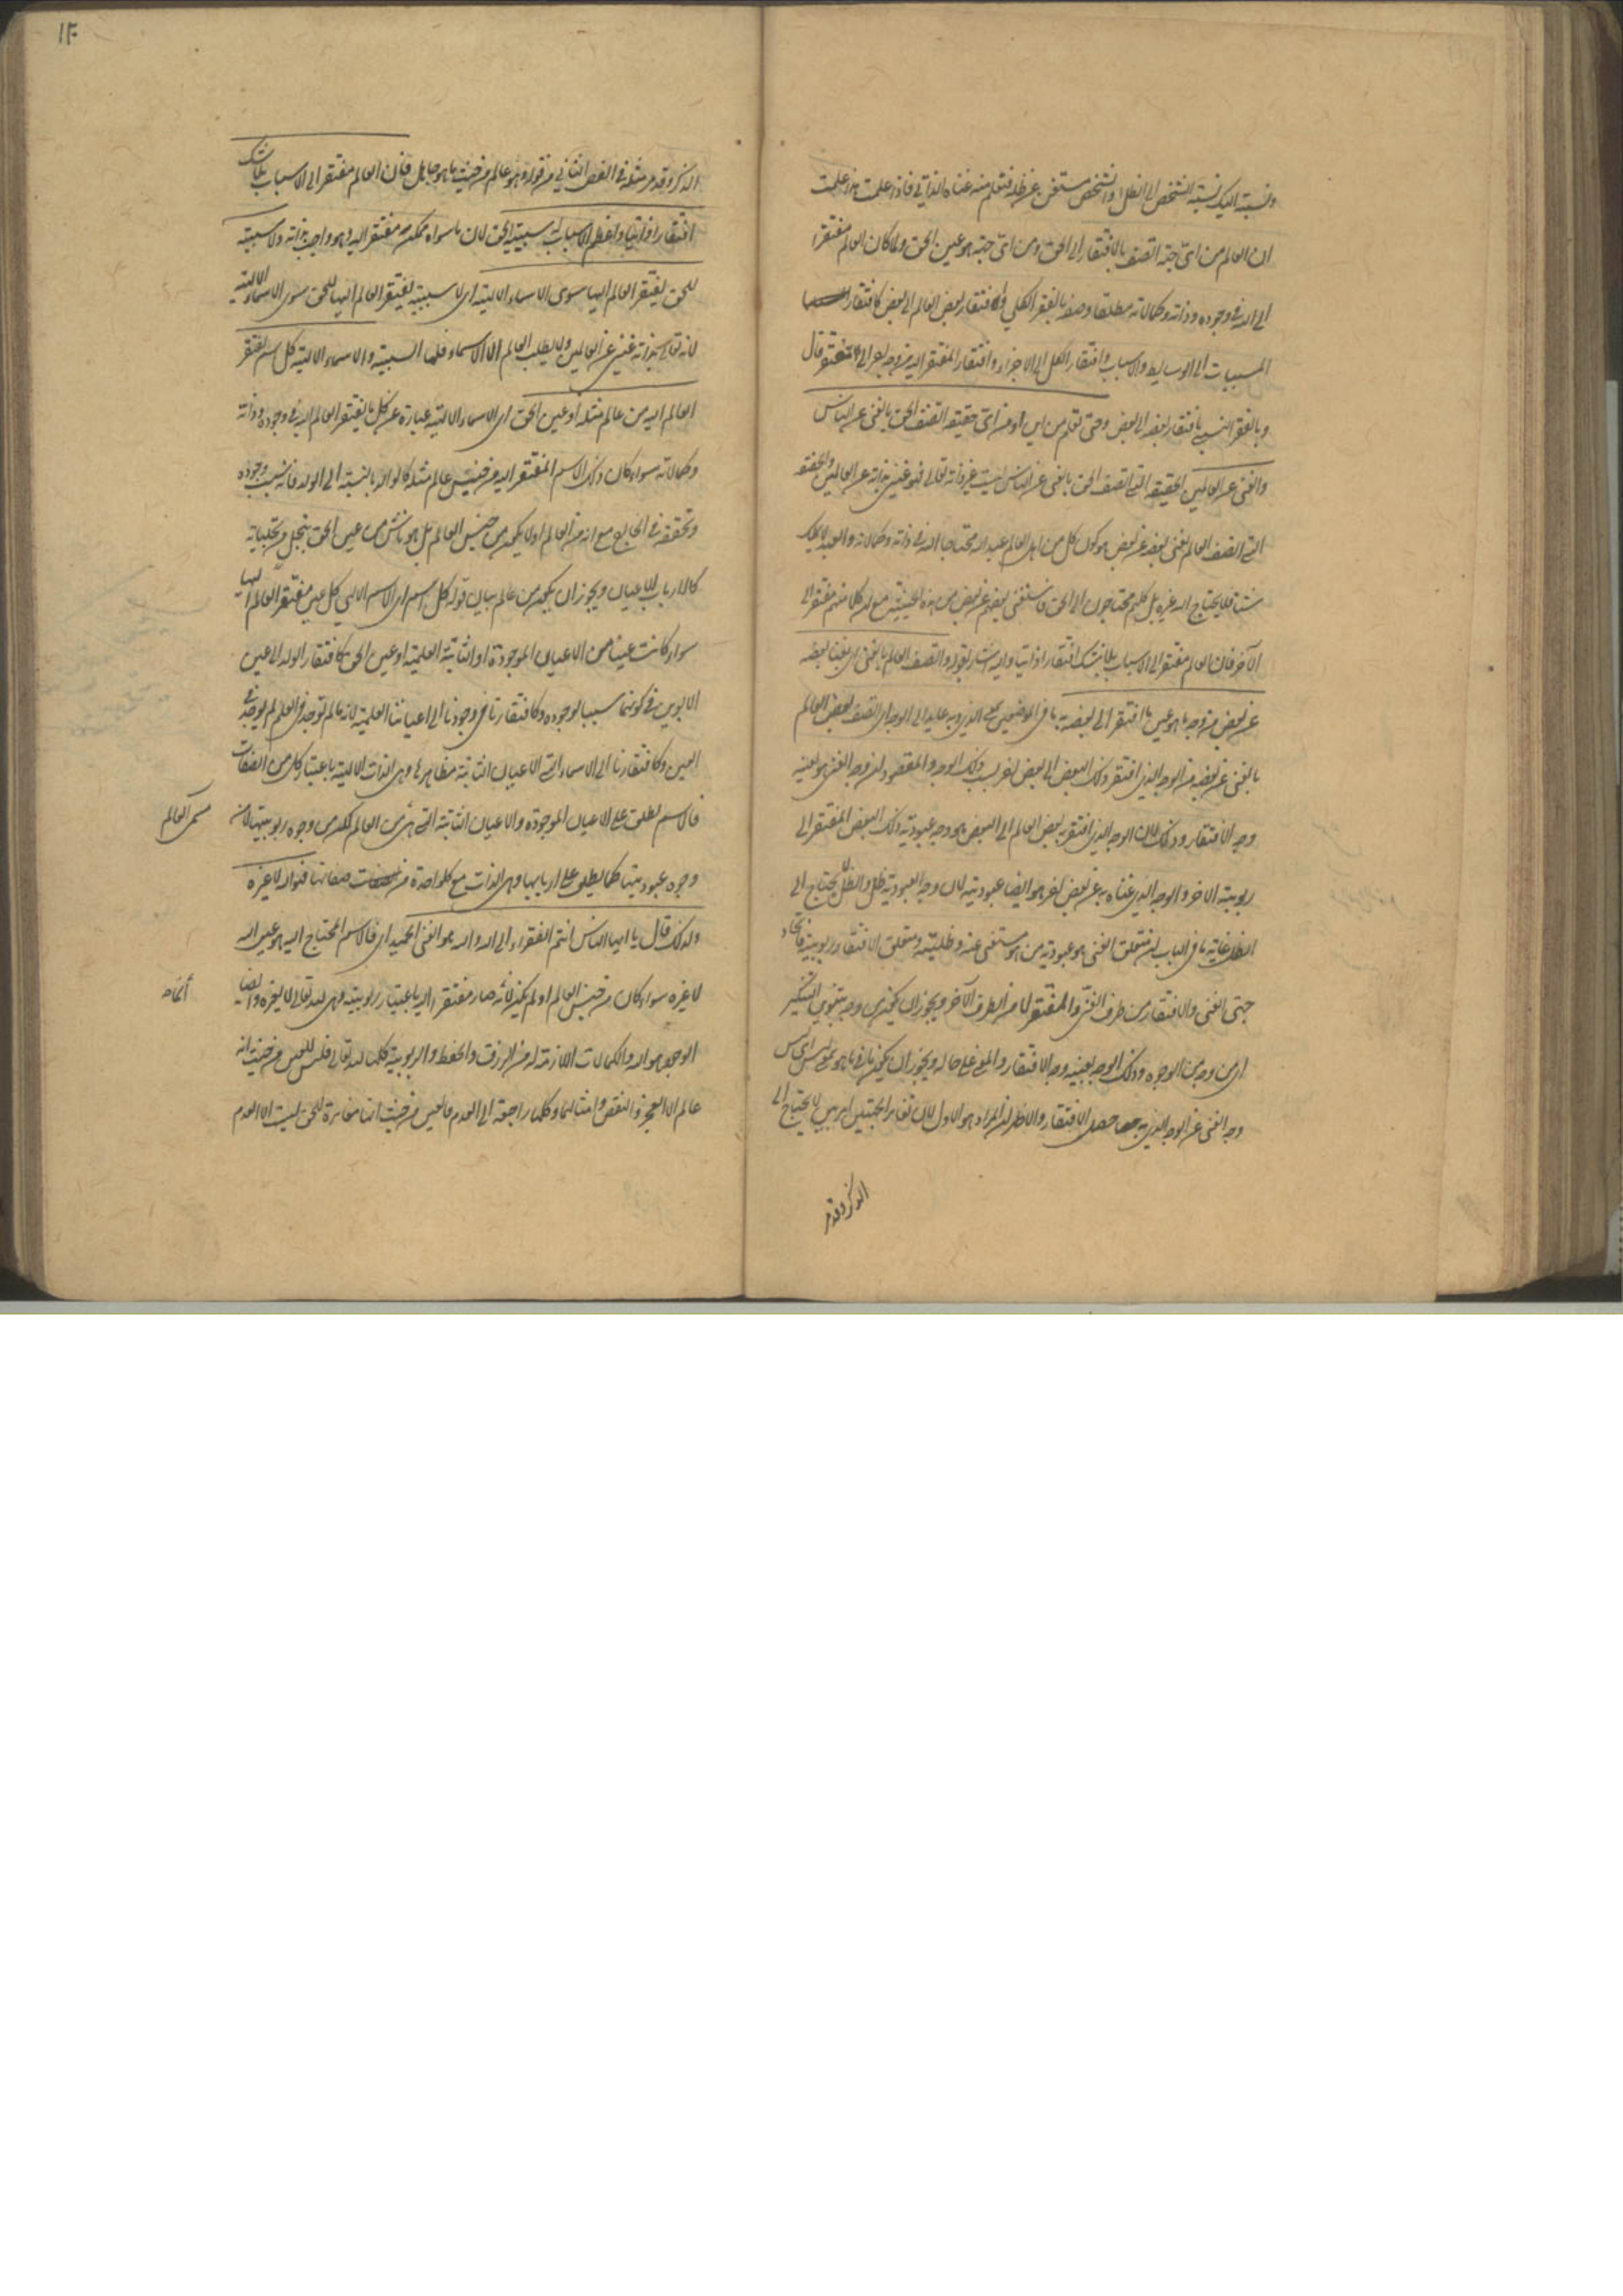 ونسبته اليك نسبة الشخص الى الظل والشخص مستغن عن ظله فتعلم منه غناه الذاتي فاذا علمت هذا علمت
ان العالم من اي جهة اتصف بالافتقار الى الحق ومن اي جهة هو عين الحق ولما كان العالم مفتقرا
الى الله في وجوده وذاته وكمالاته مطلقا وصفه بالفقر الكلي وافتقار بعض العالم الى بعض كافتقار
المسببات الى الوسايط والاسباب وافتقار الكل الى الاجزاء وافتقار المفتقر اليه من وجه قال
وبالفقر النسبي بافتقار بعضه الى بعض وحتى تعلم من اين او من اي حقيقة اتصف الحق بالغنى عن الناس
والغنى عن العالمين الحقيقة التي اتصف الحق بالغنى عن الناس ليست غير ذاته تعالى فهو غني بذاته عن العالمين والحقيقة
التي اتصف العالم بغنى بعضه عن بعض هو كون كل من اهل العالم عبد الله محتاجا اليه في ذاته وكمالاته والعبد لا يملك
شيئا فلا يحتاج اليه غيره بل كلهم محتاجون الى الحق فاستغنى بعضهم عن بعض من هذه الحيثية مع ان كلا منهم مفتقر الى
الآخر فان العالم مفتقر الى الاسباب بلا شك افتقارا ذاتيا واليه اشار بقوله واتصف العالم بالغنى اي بغناء بعضه
عن بعض من وجه ما هو عين ما افتقر الى بعضه به ما في الموضعين بمعنى الذي وبه عايد الى الوجه اي اتصف بعض العالم
بالغنى عن بعضه من الوجه الذي افتقر ذلك البعض الى بعض اخر بسبب ذلك الوجه والمقصود ان وجه الغنى هو بعينه
وجه الافتقار وذلك لان الوجه الذي افتقر به بعض العالم الى البعض هو وجه عبودية ذلك البعض المفتقر الى
ربوبية الاخر والوجه الذي غناه به عن بعض اخر هو ايضا عبوديته لان وجه العبودية ظل والظل لا يحتاج الى
الظل غاية ما في الباب ان متعلق الغنى هو عبودية من هو مستغنى عنه وظليته ومتعلق الافتقار ربوبيته فاتحاد
جهتي الغنى والافتقار من طرف الغني والمفتقر لا من الطرف الآخر ويجوز ان يكون من وجه بتنوين التنكير
اي من وجه من الوجوه وذلك الوجه بعينه وجه الافتقار والمعنى على حاله ويجوز ان يكون ما في ما هو بمعنى ليس اي ليس
وجه الغنى عن الوجه الذي به حصل الافتقار والاظهر ان المراد هو الاول لان تغاير الجهتين امر بين لا يحتاج الى
الذكر وقدم
١٢٠
الذكر وقدم مثله في الفص الثاني من قوله وهو عالم من حيث ما هو جاهل فان العالم مفتقر الى الاسباب بلا شك
افتقارا ذاتيا واعظم الاسباب له سببية الحق لان ما سواه ممكن مفتقر اليه وهو واجب بذاته ولا سببية
للحق يفتقر العالم اليها سوى الاسماء الالهية اي لا سببية يفتقر العالم اليها للحق سوى الاسماء الالهية
لانه تعالى بذاته غني عن العالمين ولا يطلب العالم الا الاسماء فلها السببية والاسماء الالهية كل اسم يفتقر
العالم اليه من عالم مثله او عين الحق اي الاسماء الالهية عبارة عن كل ما يفتقر العالم اليه في وجوده وذاته
وكمالاته سواء كان ذلك الاسم المفتقر اليه من جنس عالم مثله كالوالد بالنسبة الى الولد فانه سبب وجوده
وتحققه في الخارج مع انه من العالم او لا يكون من جنس العالم بل هو ناش من عين الحق بتجل من تجلياته
كالارباب للاعيان ويجوز ان يكون من عالم بيان قوله كل اسم اي الاسم الالهي كل عين مفتقر العالم اليها
سواء كانت عينا من الاعيان الموجودة او الثابتة العلمية او عين الحق كافتقار الولد الى عين
الابوين في كونهما سببا لوجوده وكافتقارنا في وجودنا الى اعياننا العلمية لانه ما لم توجد في العلم لم توجد في
العين وكافتقارنا الى الاسماء التي الاعيان الثابتة مظاهرها وهي الذات الالهية باعتبار كل من الصفات
فالاسم يطلق على الاعيان الموجودة والاعيان الثابتة التي هي من العالم لكن من وجوه ربوبيتها لا من
وجوه عبوديتها كما يطلق على اربابها وهي الذات مع كل واحدة من صفاتها فهو الله لا غيره
ولذلك قال يا ايها الناس انتم الفقراء الى الله والله هو الغني الحميد اي فالاسم المحتاج اليه هو عين الله
لا غيره سواء كان من جنس العالم او لم يكن لانه صار مفتقرا اليه باعتبار ربوبيته وهي لله تعالى لا لغيره وايضا
الوجود هو الله والكمالات اللازمة له من الرزق والحفظ والربوبية كلها لله تعالى فليس للعين من حيث انه
عالم الا العجز والنقص وامثالهما وكلها راجعة الى العدم فالعين من حيث انها مغايرة للحق ليست الا العدم